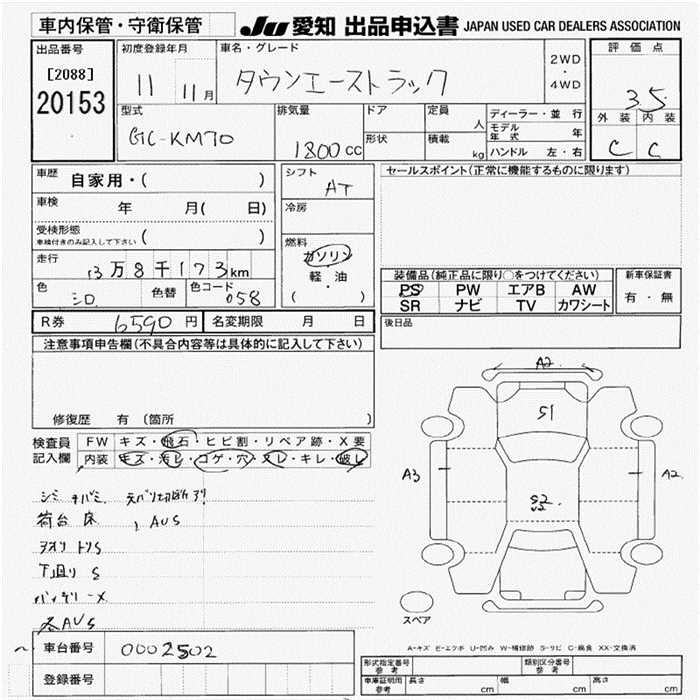 車内保管・守衛保管
JU 愛知 出品申込書 JAPAN USED CAR DEALERS ASSOCIATION
出品番号
[2088]
20153
初度登録年月
11 11月
車名・グレード
タウンエーストラック
2WD
・
4WD
評価点
3.5
外装 内装
C C
型式
GC-KM70
排気量
1800 CC
ドア
形状
定員
人
積載
kg
ディーラー・並行
モデル年式 年
ハンドル 左・右
車歴
自家用・( )
車検
年 月( 日)
受検形態
車検付きのみ記入して下さい ( )
走行
13万8千173km
色
シロ
色替
色コード
058
シフト
AT
冷房
燃料
ガソリン
軽・油
( )
セールスポイント(正常に機能するものに限ります)
装備品(純正品に限り○をつけてください)
PS PW エアB AW
SR ナビ TV カワシート
新車保証書
有・無
R券 6590 円
名変期限 月 日
後日品
注意事項申告欄(不具合内容等は具体的に記入して下さい)
修復歴 有 (箇所 )
検査員
記入欄
FW キズ・飛石・ヒビ割・リペア跡・X要
内装 キズ・汚レ・コゲ・穴・スレ・キレ・破レ
荷台床
, AUS
アオリ トリS
下廻り S
バッテリーX
各AUS
A2
S1
A3
A2
S2
スペア
A-キズ E-エクボ U-凹み W-補修跡 S-サビ C-腐食 XX-交換済
車台番号 0002502
登録番号
形式指定番号
参考
類別区分番号
参考
車庫証明用
参考
長さ cm
幅 cm
高さ cm